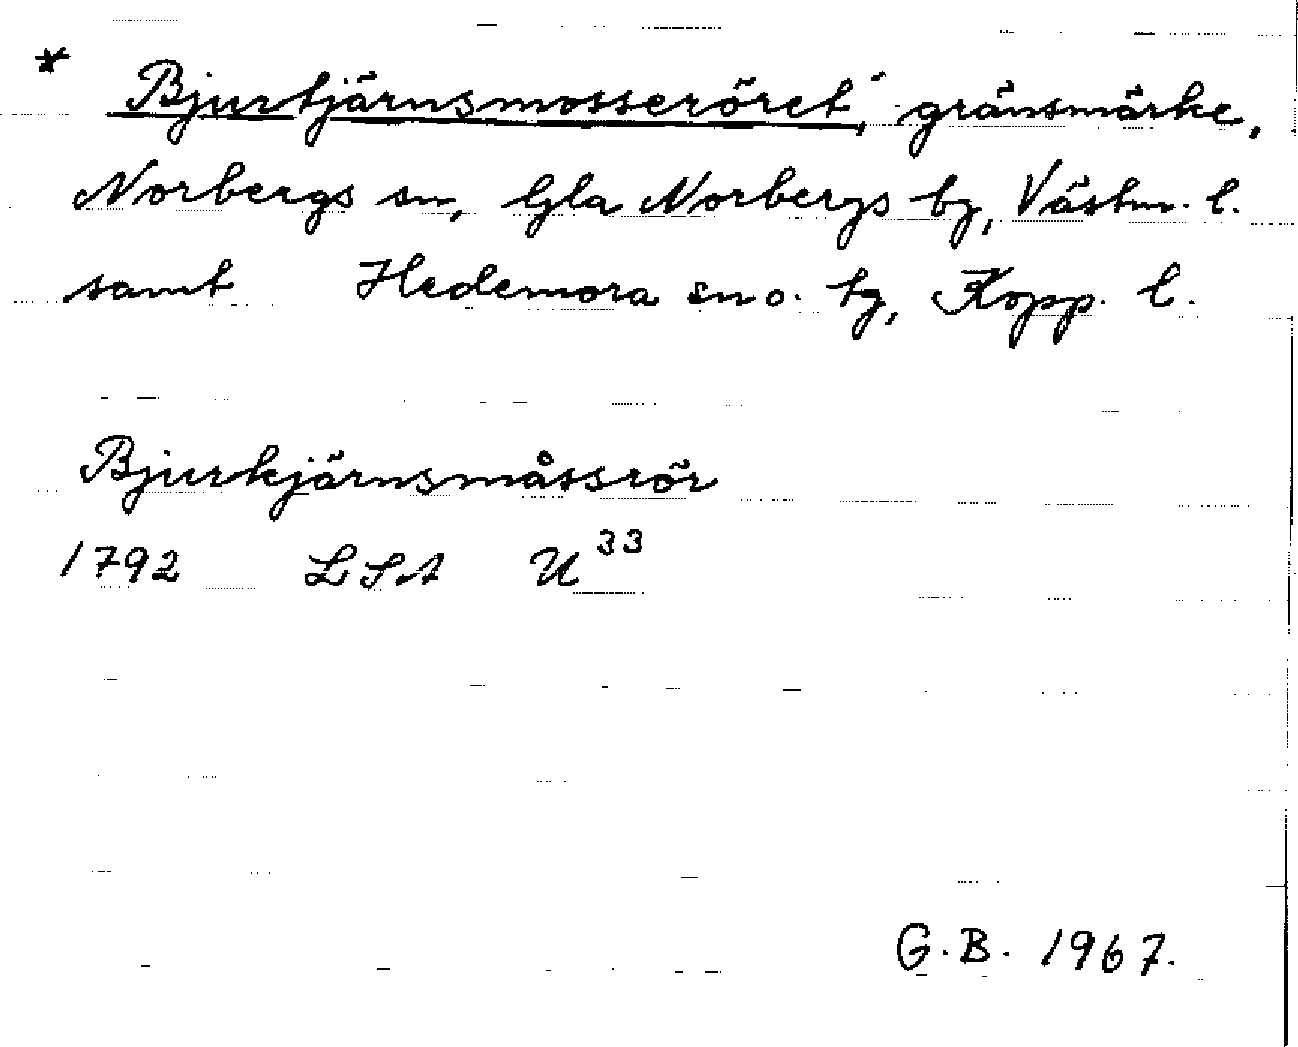 * Bjurtjärnsmosseröret, gränsmärke,
Norbergs sn, Gla Norbergs bg, Västm. l.
samt Hedemora sn o. tg, Kopp. l.
Bjurkjärnsmåssrör
1792 LSA U33
G.B. 1967.